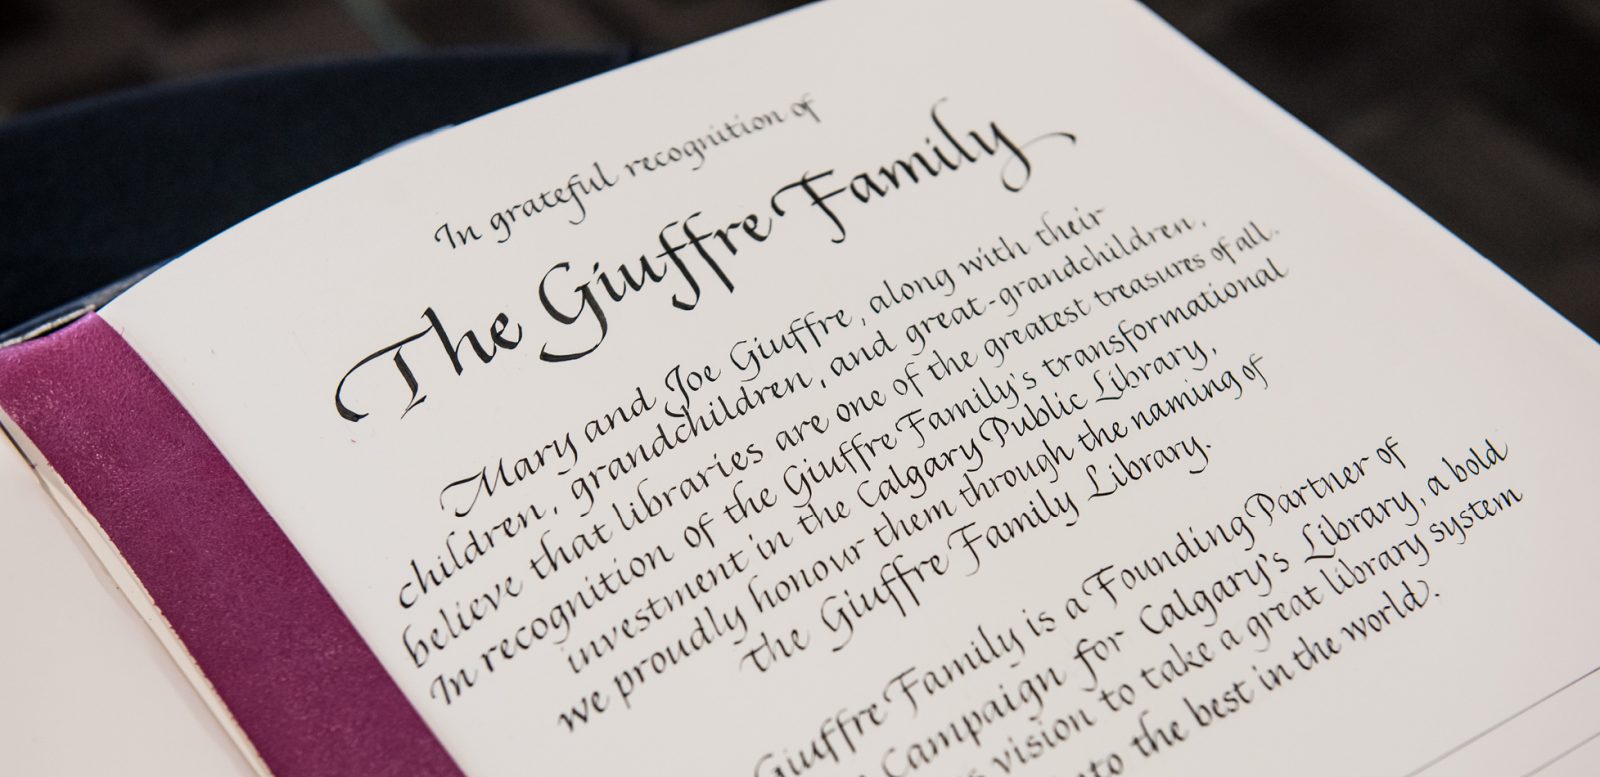 In grateful recognition of
The Giuffre Family
Mary and Joe Giuffre, along with their
children, grandchildren, and great-grandchildren,
believe that libraries are one of the greatest treasures of all.
In recognition of the Giuffre Family's transformational
investment in the Calgary Public Library,
we proudly honour them through the naming of
the Giuffre Family Library.
Giuffre Family is a Founding Partner of
Campaign for Calgary's Library, a bold
vision to take a great library system
to the best in the world.